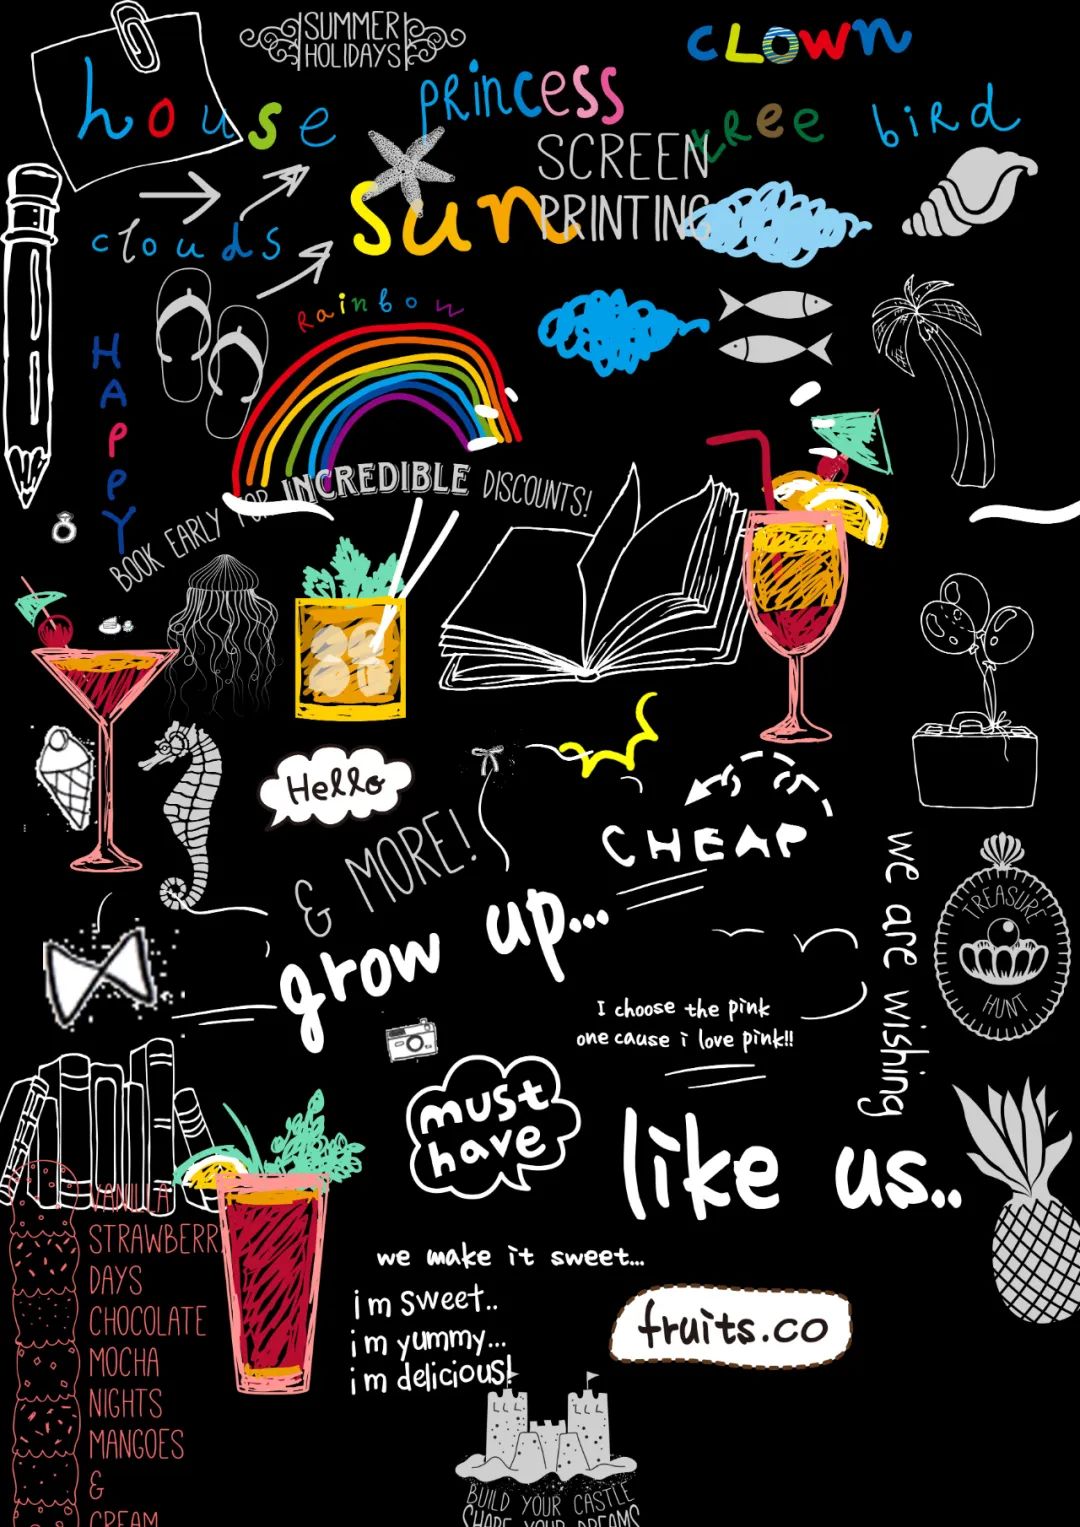 SUMMER
HOLIDAYS
CLOWN
house
PRincess
tRee
biRd
SCREEN
PRINTING
clouds
Sun
Rainbow
HAPPY
BOOK EARLY FOR INCREDIBLE DISCOUNTS!
Hello
& MORE!
CHEAP
grow up...
we are wishing
TREASURE
HUNT
I choose the pink
one cause i love pink!!
must
have
like us..
we make it sweet...
im sweet..
im yummy...
im delicious!
fruits.co
VANILLA
STRAWBERR
DAYS
CHOCOLATE
MOCHA
NIGHTS
MANGOES
&
CREAM
BUILD YOUR CASTLE
SHARE YOUR DREAMS